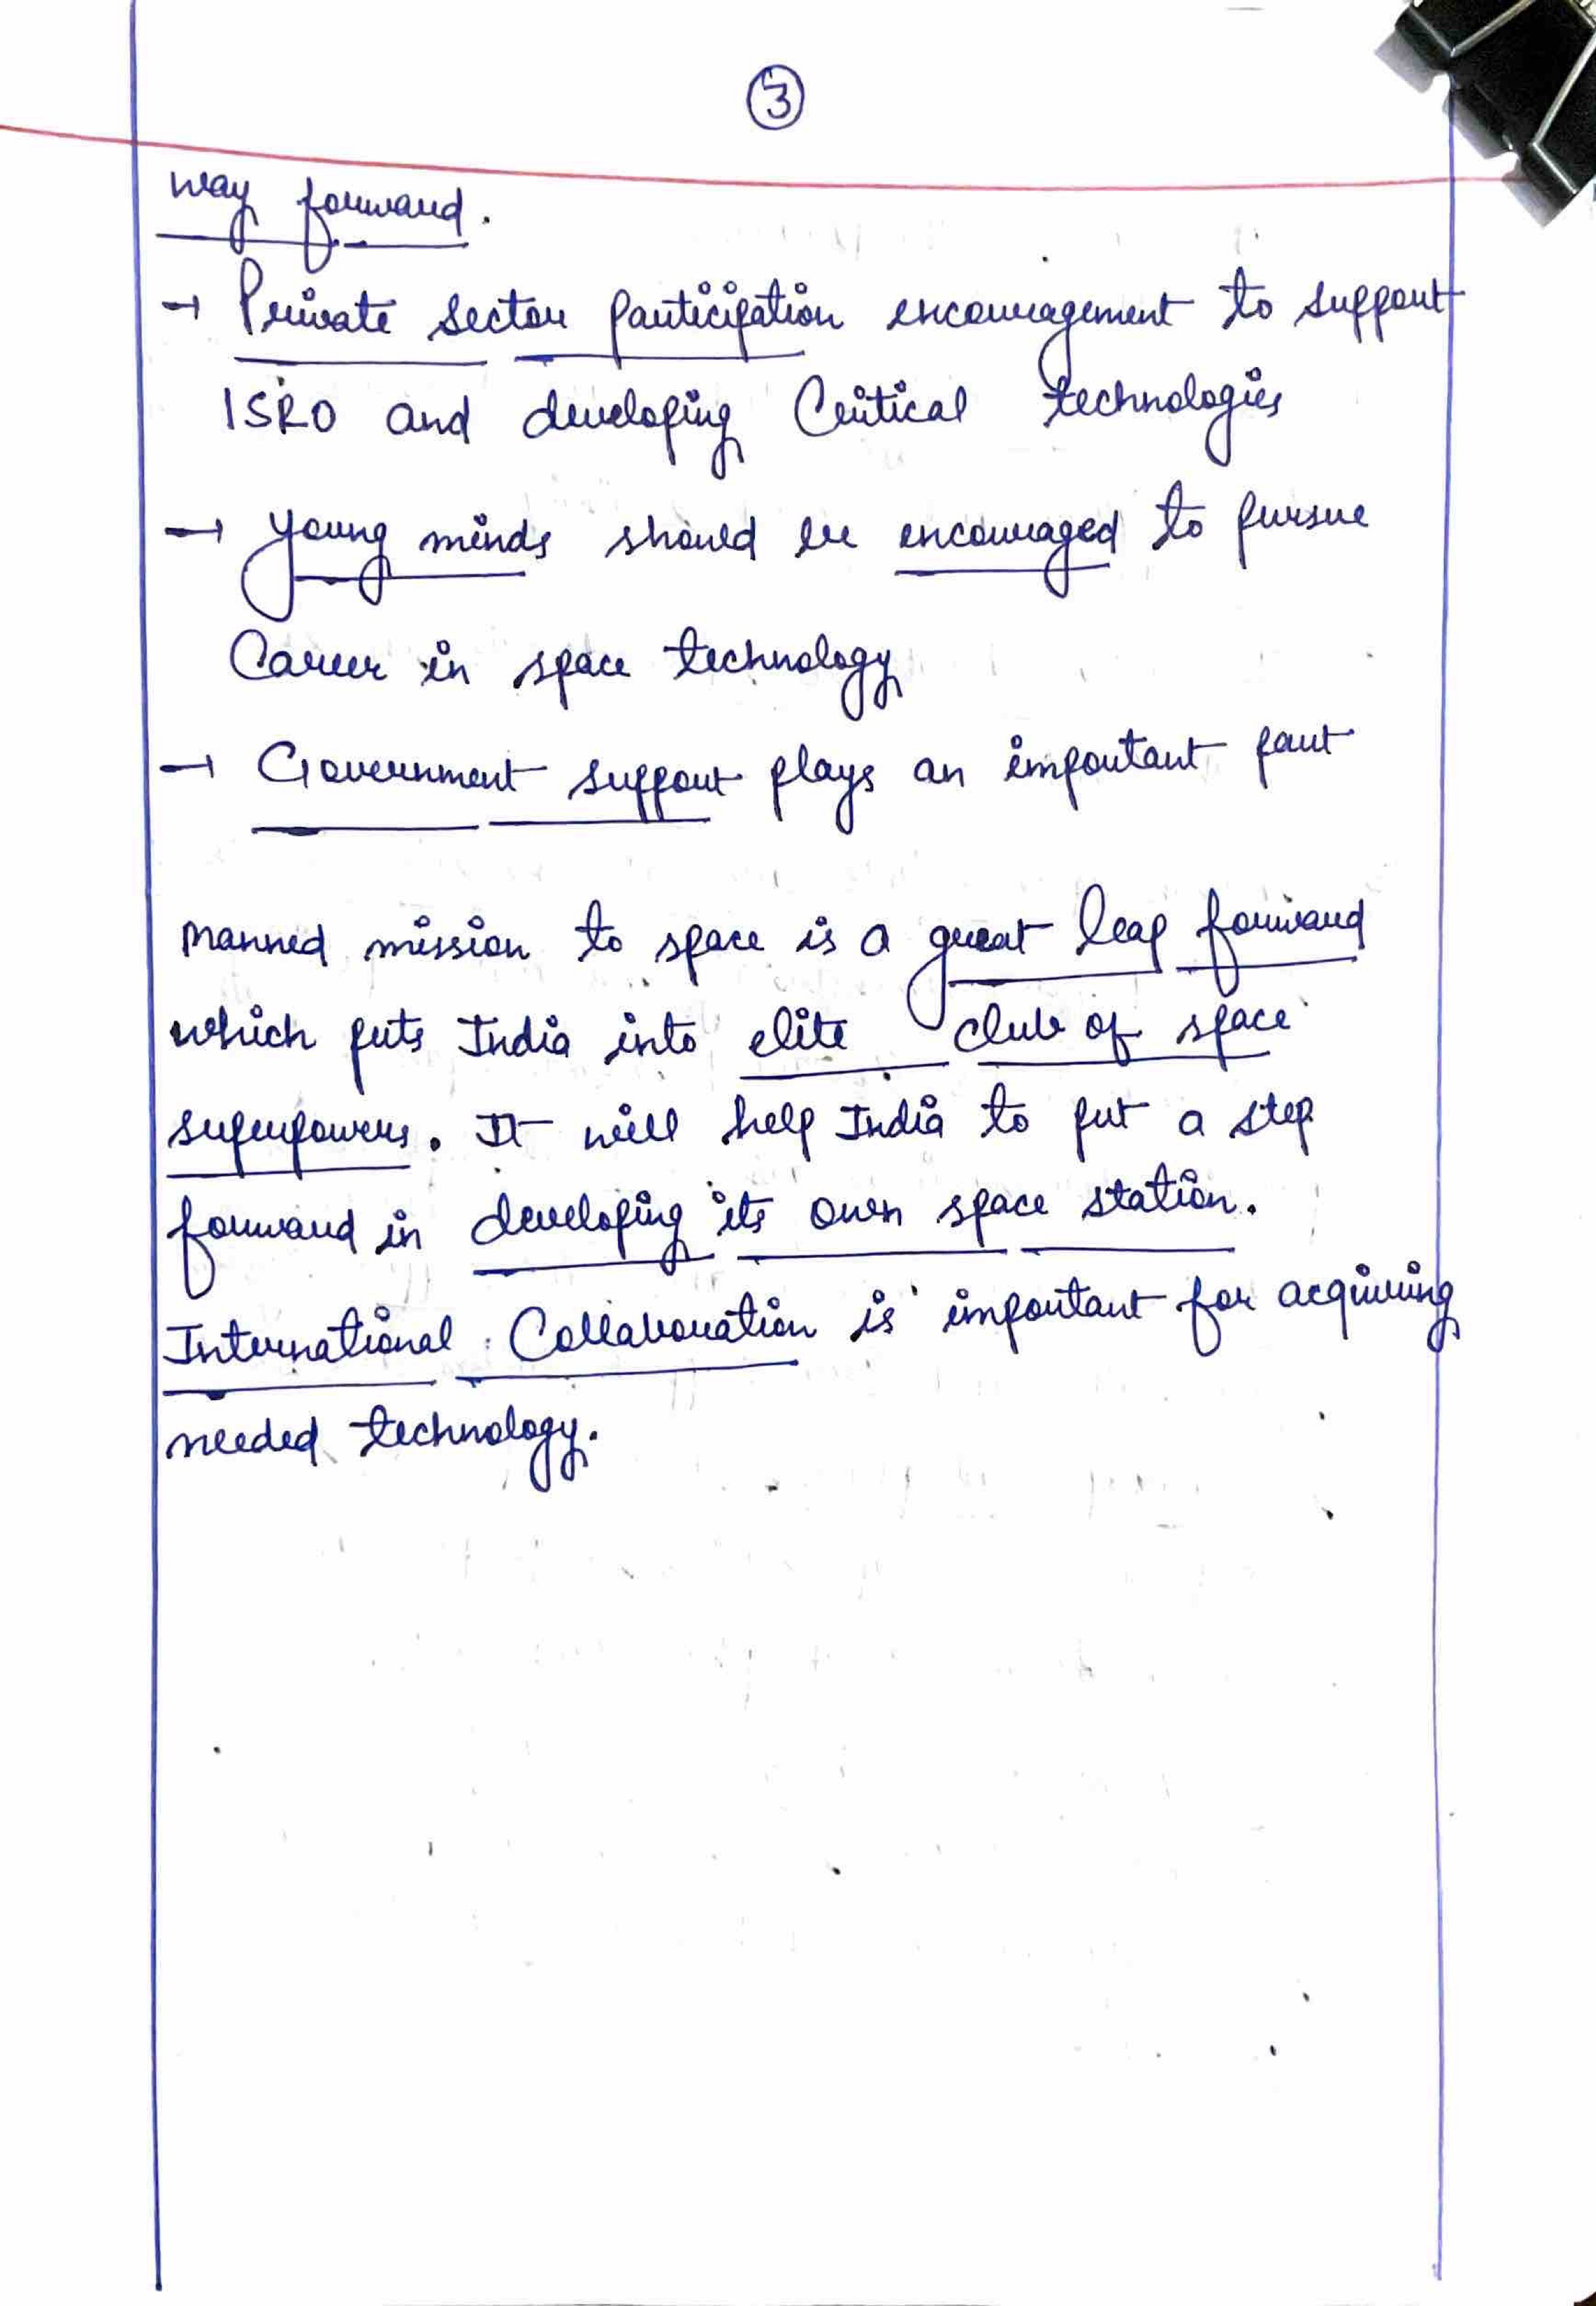 3
way forward.
→ Private sector participation encouragement to support
ISRO and developing Critical technologies
→ young minds should be encouraged to pursue
Career in space technology
→ Government support plays an important part
manned mission to space is a great leap forward
which puts India into elite club of space
superpowers. It will help India to put a step
forward in developing its own space station.
International Collaboration is important for acquiring
needed technology.